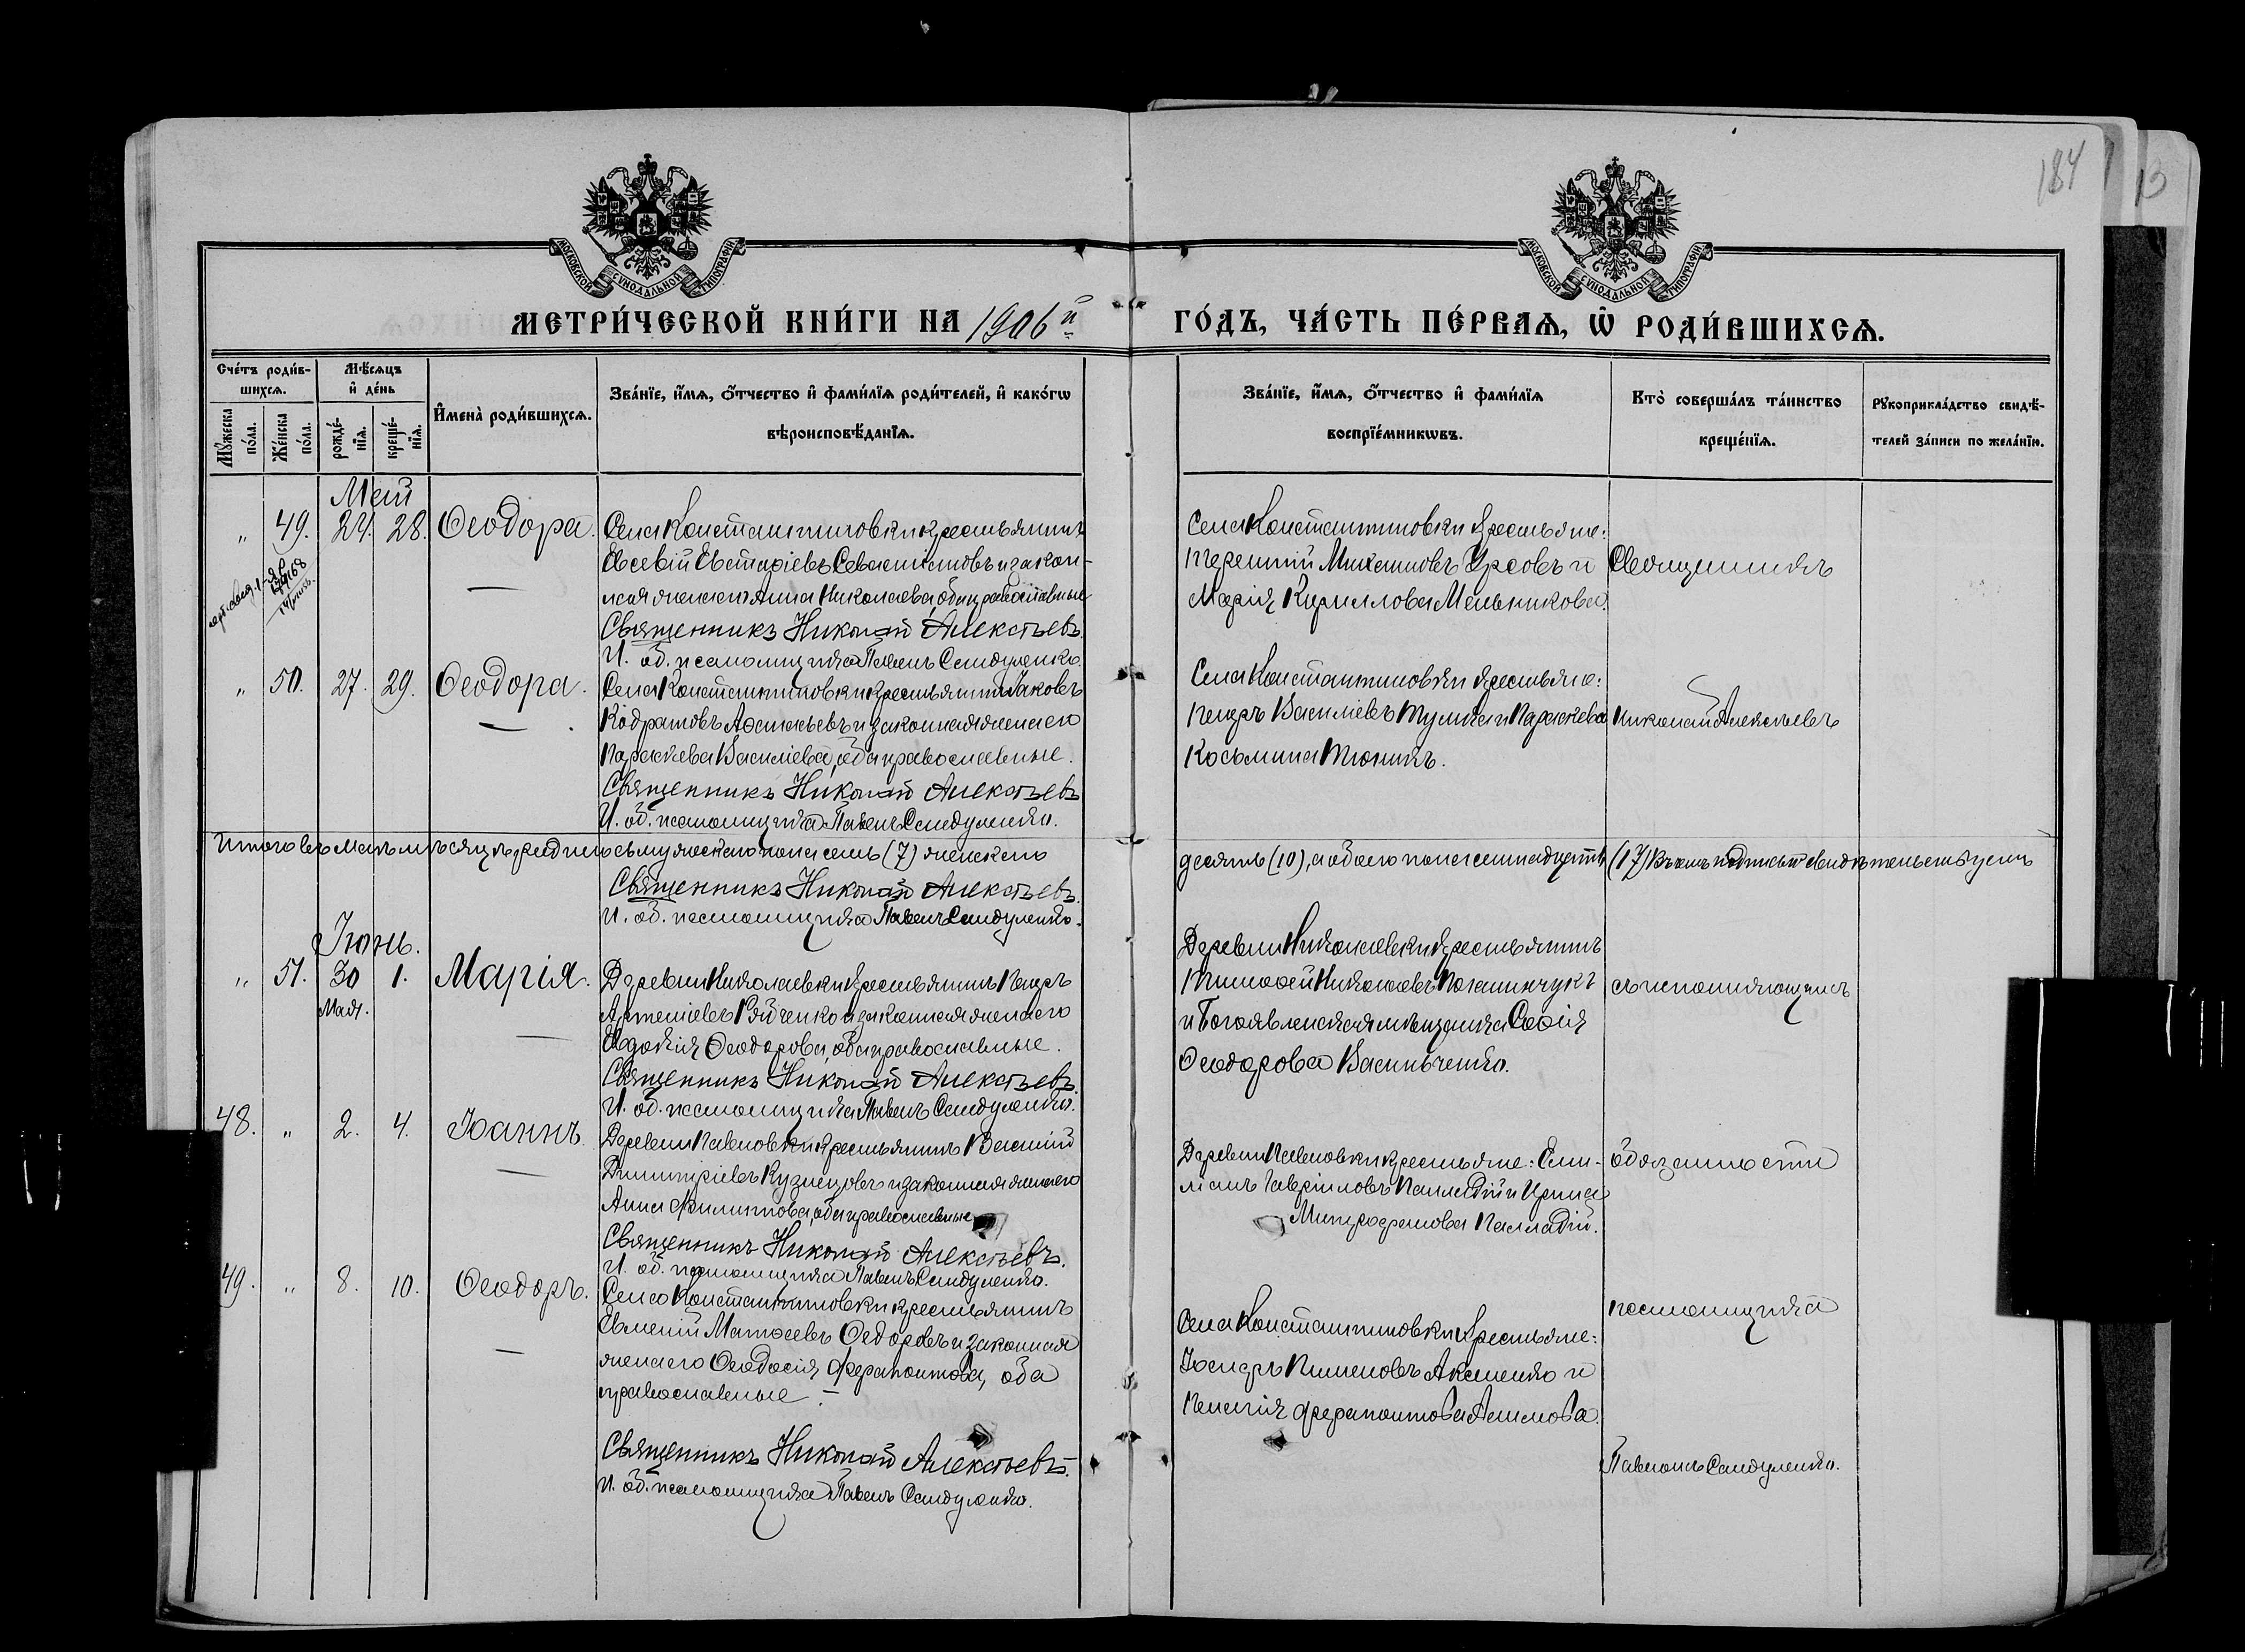 184
13
МОСКОВСКОЙ СѴНОДАЛЬНОЙ ТИПОГРАФІИ
МОСКОВСКОЙ СѴНОДАЛЬНОЙ ТИПОГРАФІИ
МЕТРИ́ЧЕСКОЙ КНИ́ГИ НА 1906й
ГО́ДЪ, ЧА́СТЬ ПЕ́РВАѦ, Ѽ РОДИ́ВШИХСѦ.
Сче́тъ роди́в-
шихсѧ.
Мѣ́сѧцъ
и҆ де́нь
Мꙋ́жеска по́ла.
Же́нска по́ла.
рожде́-
нїѧ.
креще́-
нїѧ.
И҆мена̀ роди́вшихсѧ.
Зва́нїе, и҆́мѧ, ѻ҆́тчество и҆ фами́лїѧ роди́телей, и҆ како́гѡ
вѣроисповѣ́данїѧ.
Зва́нїе, и҆́мѧ, ѻ҆́тчество и҆ фами́лїѧ
воспрїе́мникѡвъ.
Кто̀ соверша́лъ та́инство
креще́нїѧ.
Рꙋкоприкла́дство свидѣ́-
телей за́писи по жела́нїю.
Май
„ 49. 24. 28. Ѳеодора.
Села Константиновки крестьянинъ
Евсевій Евстафіевъ Севастіановъ и закон-
ная жена его Анна Николаева, оба православные
Священникъ Николай Алексѣевъ.
И. об. псаломщика Павелъ Сандуленко.
Села Константиновки крестьяне:
Терентій Михаиловъ Урсовъ и
Марія Кириллова Мельникова.
Священникъ
„ 50. 27. 29. Ѳеодора.
Села Константиновки крестьянинъ Іаковъ
Кодратовъ и законная жена его
Параскева Василіева, оба православные.
Священникъ Николай Алексѣевъ
И. об. псаломщика Павелъ Сандуленко.
Села Константиновки крестьяне:
Петръ Василіевъ и Параскева
Косьмина
Николай Алексѣевъ
Итого въ маѣ мѣсяцѣ родилось мужескаго пола семь (7) женскаго
десять (10), а обоего пола семнадцать (17) въ чемъ подписью свидѣтельствуемъ
Священникъ Николай Алексѣевъ.
И. об. псаломщика Павелъ Сандуленко.
Іюнь.
„ 51. 30 1. Марія.
Мая.
Деревни Николаевки крестьянинъ Петръ
Артеміевъ Райченко и законная жена его
Евдокія Ѳеодорова, оба православные.
Священникъ Николай Алексѣевъ.
И. об. псаломщика Павелъ Сандуленко.
Деревни Николаевки крестьянинъ
Тимоѳей Николаевъ
и Богоявленская мѣщанка Софія
Ѳеодорова Васильченко.
съ исполняющимъ
48. „ 2. 4. Іоаннъ.
Деревни Павловки крестьянинъ Василій
Димитріевъ Кузнецовъ и законная жена его
Анна Филиппова, оба православные
Священникъ Николай Алексѣевъ.
И. об. псаломщика Павелъ Сандуленко.
Деревни Павловки крестьяне: Еми-
ліанъ Гавріиловъ Палладій и Ирина
Митрофанова Палладій.
обязанности
49. „ 8. 10. Ѳеодоръ.
Села Константиновки крестьянинъ
Евменій Матѳеевъ Ѳедоровъ и законная
жена его Ѳеодосія Ферапонтова, оба
православные.
Священникъ Николай Алексѣевъ.
И. об. псаломщика Павелъ Сандуленко.
Села Константиновки крестьяне:
Іосифъ Пименовъ Аксененко и
Пелагія Ферапонтова
псаломщика
Павломъ Сандуленко.